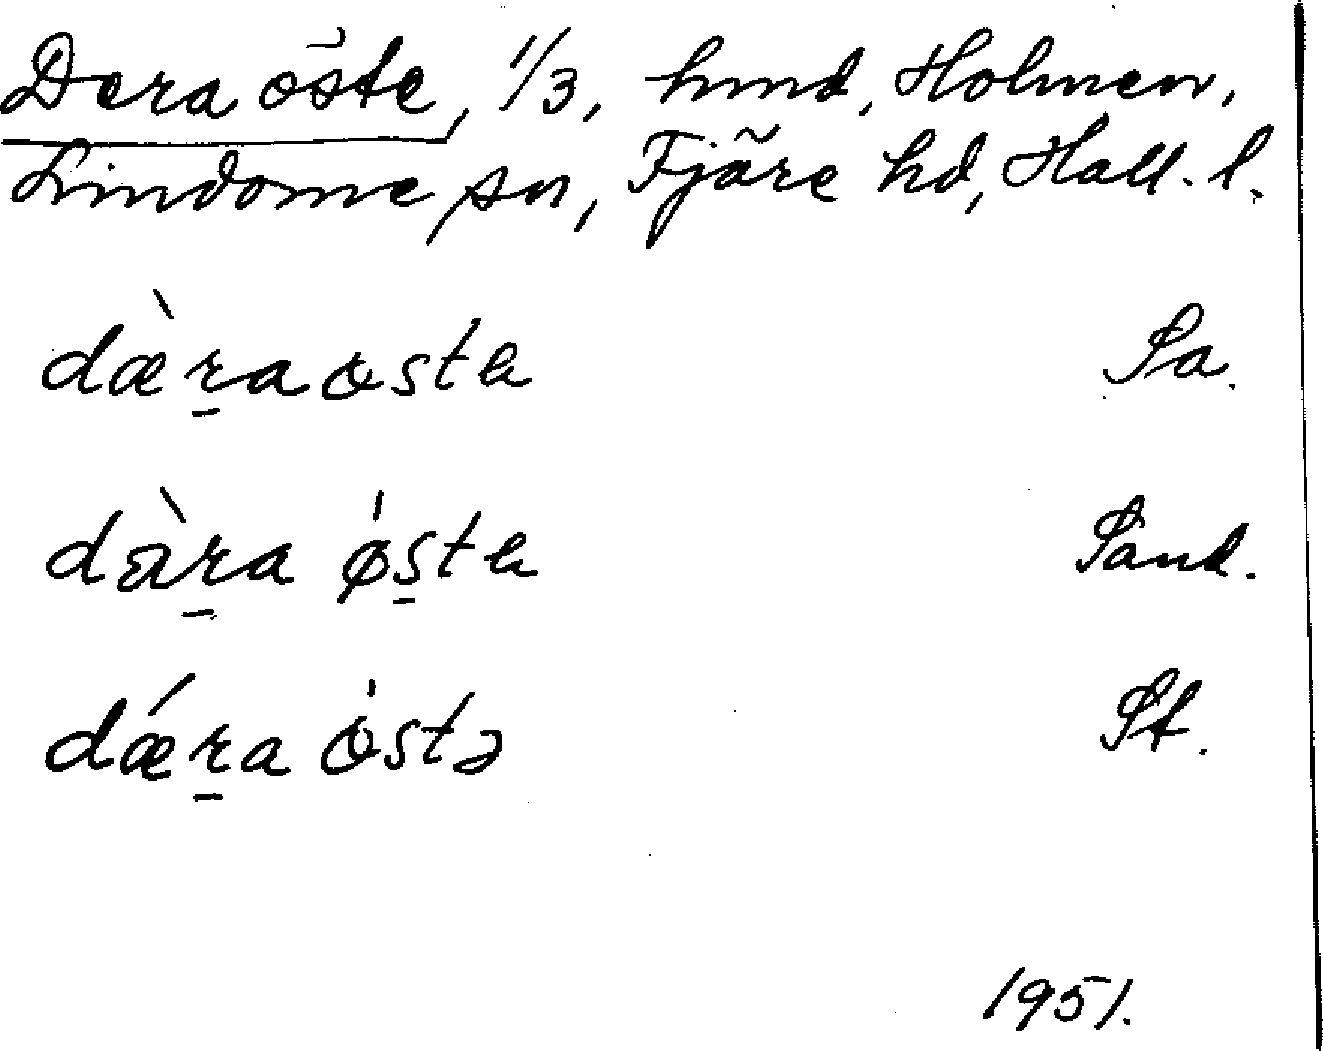 Dera öste, 1/3, hmd, Holmen,
Lindome sn, Fjäre hd, Hall. l.
dæ̀r̠aosta Sa.
dàr̠a ø̍s̠ta Sand.
dǽr̠a o̍stə St.
1951.